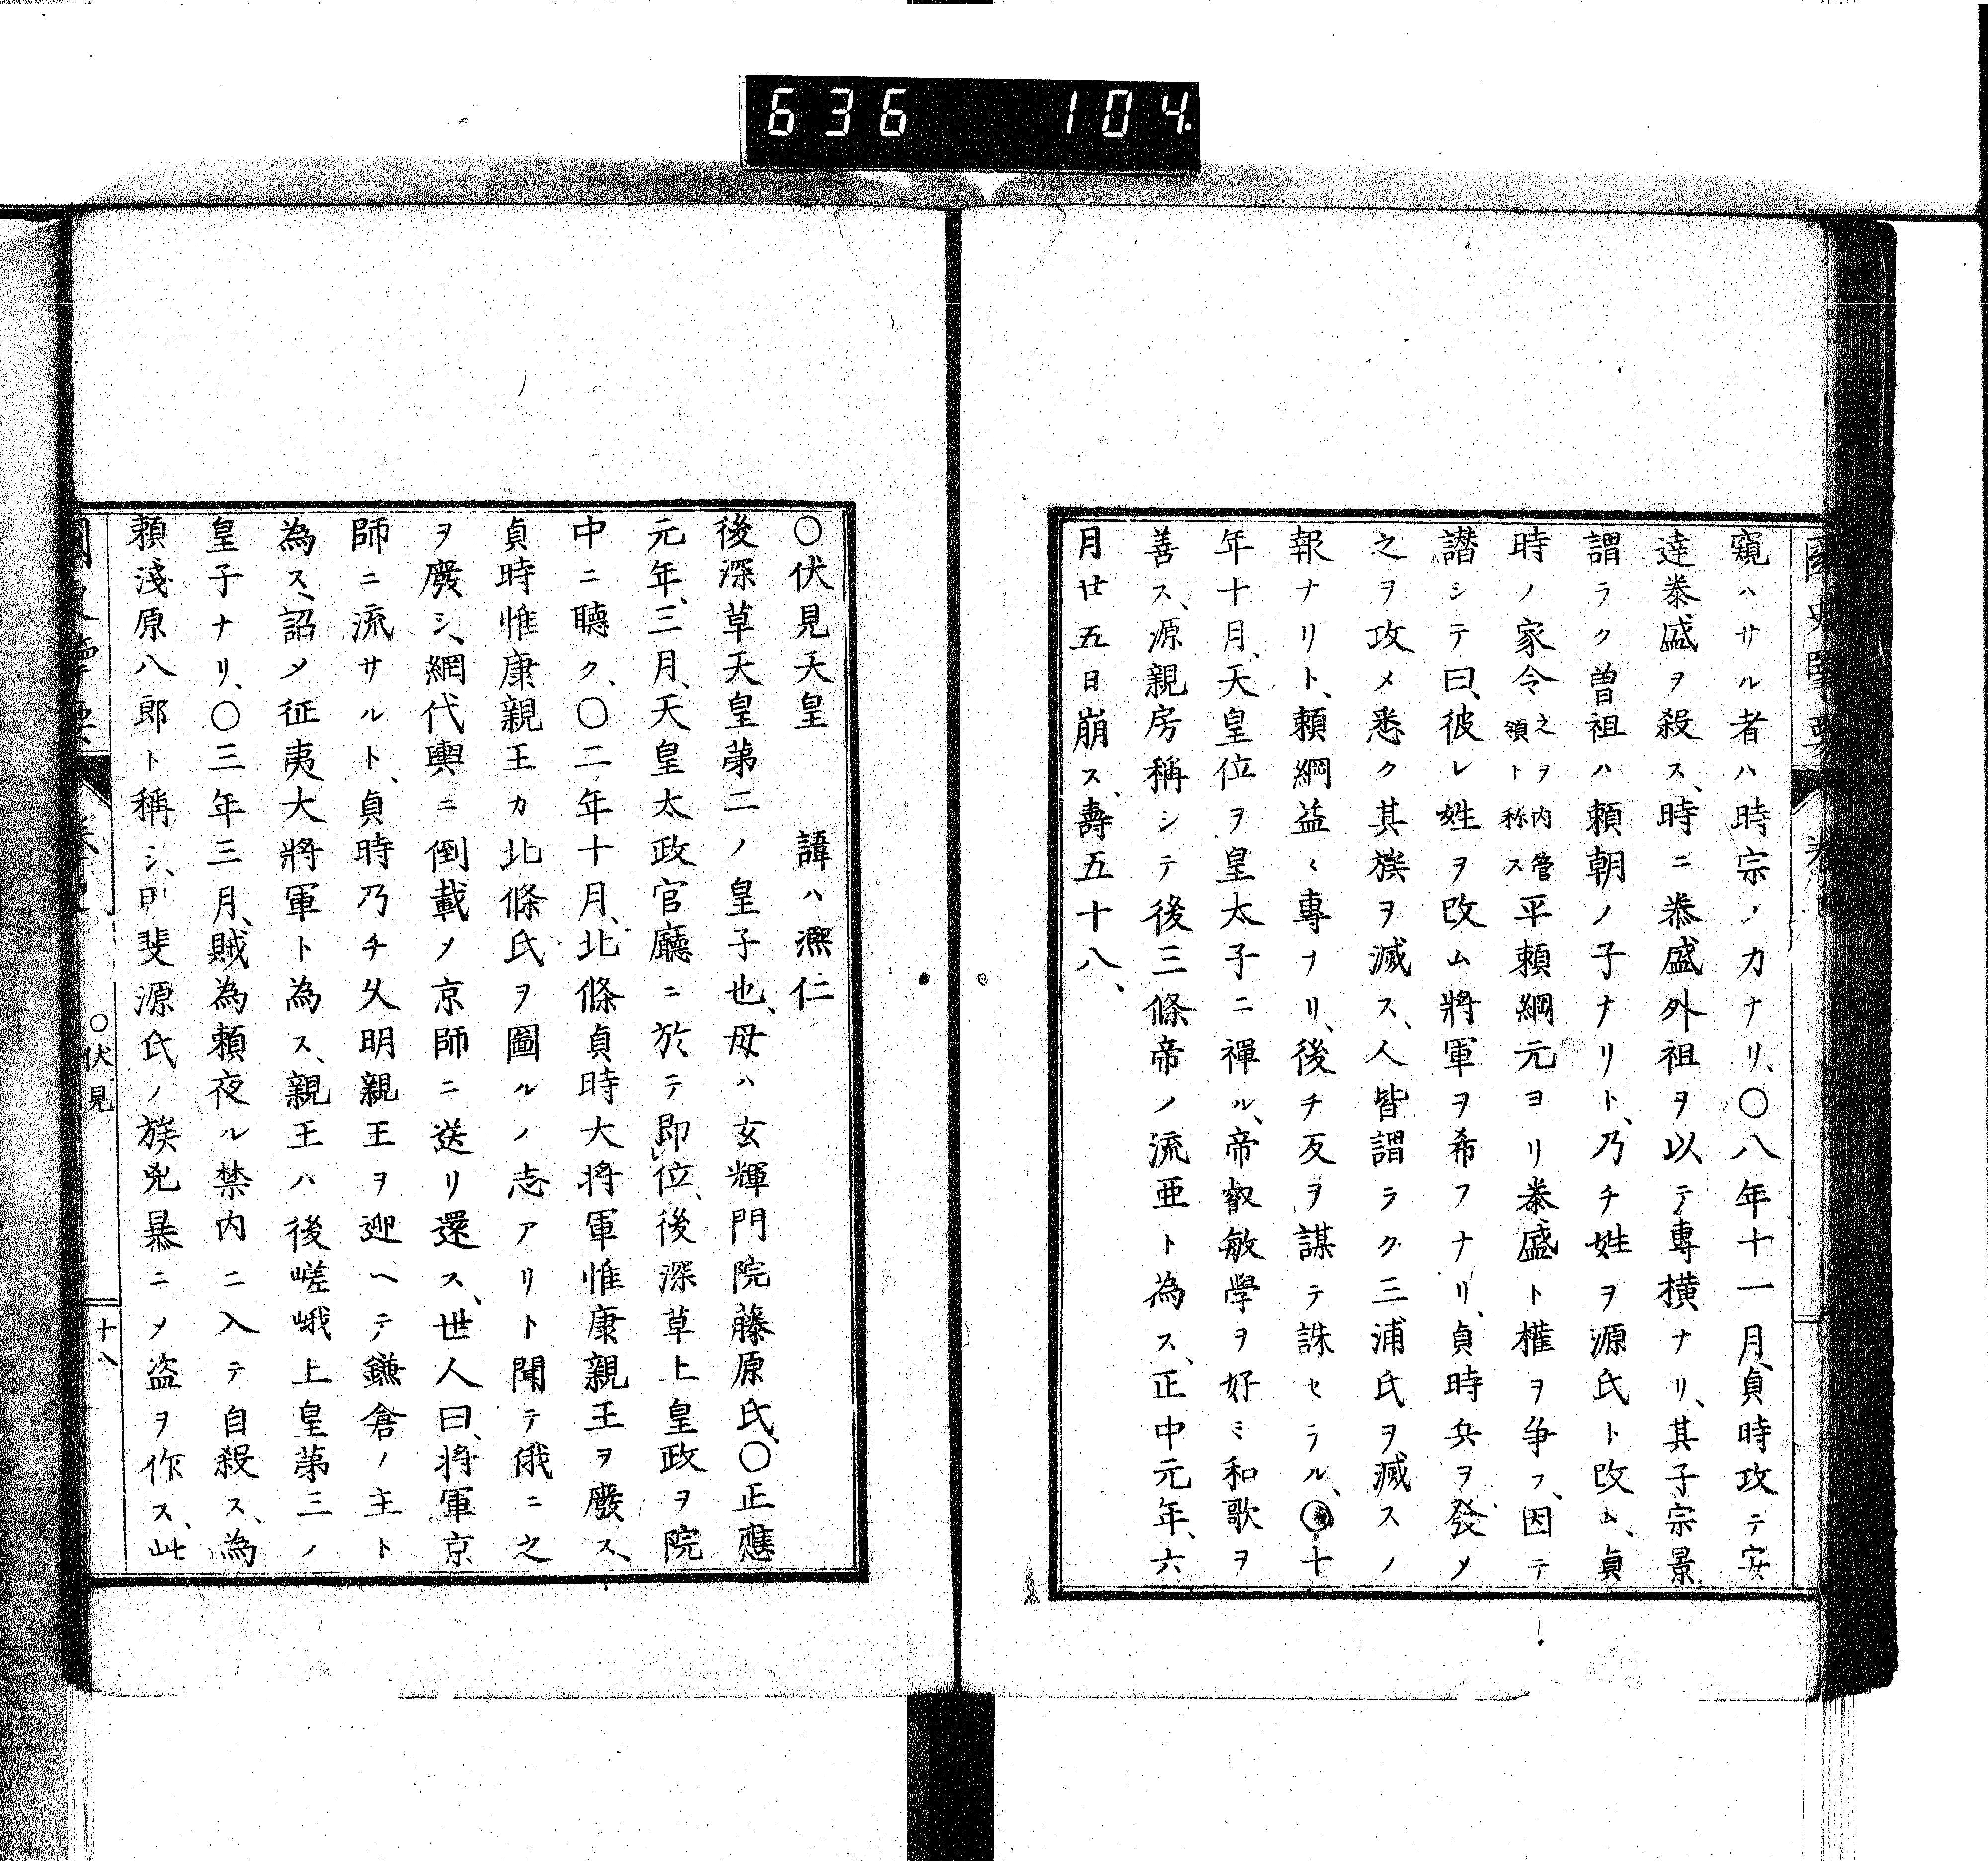 636 104
窺ハサル者ハ時宗ノ力ナリ、〇八年十一月、貞時攻テ安
達泰盛ヲ殺ス、時ニ泰盛外祖ヲ以テ專横ナリ、其子宗景
謂ラク曽祖ハ頼朝ノ子ナリト、乃チ姓ヲ源氏ト改ム、貞
時ノ家令之ヲ内管領ト称ス平頼綱元ヨリ泰盛ト權ヲ争フ、因テ
譖シテ曰、彼レ姓ヲ改ム將軍ヲ希フナリ、貞時兵ヲ發メ
之ヲ攻メ悉ク其族ヲ滅ス、人皆謂ラク三浦氏ヲ滅スノ
報ナリト、頼綱益〻專ナリ、後チ反ヲ謀テ誅セラル、〇十
年十月、天皇位ヲ皇太子ニ禪ル、帝叡敏學ヲ好ミ和歌ヲ
善ス、源親房稱シテ後三條帝ノ流亜ト為ス、正中元年、六
月廿五日崩ス、壽五十八、
〇伏見天皇 諱ハ凞仁
後深草天皇第二ノ皇子也、母ハ玄輝門院藤原氏、〇正應
元年、三月、天皇太政官廳ニ於テ即位、後深草上皇政ヲ院
中ニ聽ク、〇二年十月、北條貞時大将軍惟康親王ヲ廢ス、
貞時惟康親王カ北條氏ヲ圖ルノ志アリト聞テ俄ニ之
ヲ廢シ、網代輿ニ倒載メ京師ニ送リ還ス、世人曰、将軍京
師ニ流サルト、貞時乃チ久明親王ヲ迎ヘテ鎌倉ノ主ト
為ス、詔メ征夷大將軍ト為ス、親王ハ後嵯峨上皇第三ノ
皇子ナリ、〇三年三月、賊為頼夜ル禁内ニ入テ自殺ス、為
頼淺原八郎ト稱シ、甲斐源氏ノ族兇暴ニメ盗ヲ作ス、此
〇伏見
十八